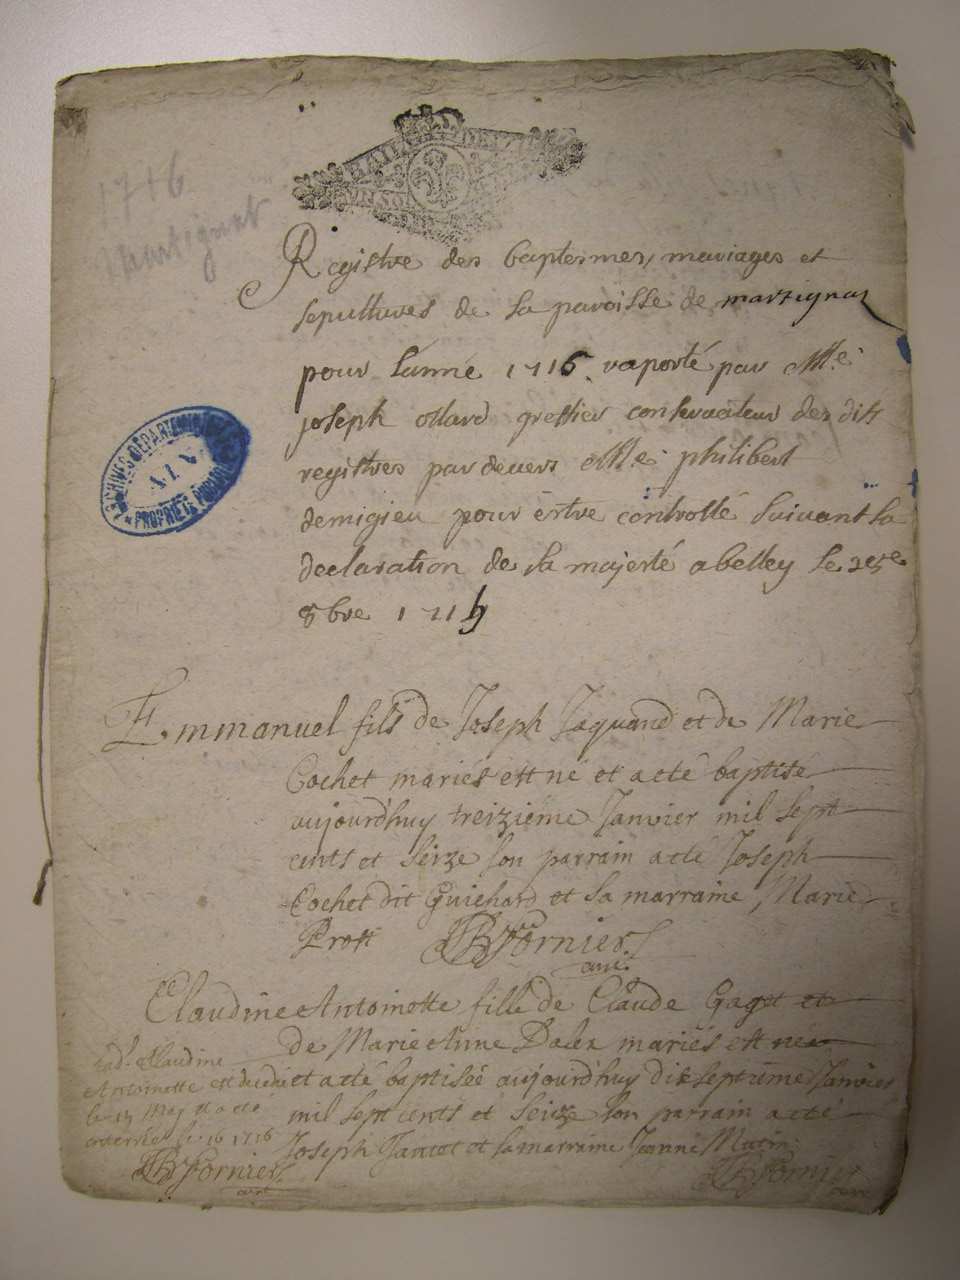 1716
Martignat
Registre des baptesmes, mariages et
sepultures de la paroisse de martignat
pour lánné 1716. raporté par Mre.
joseph ollard greffier conservateur des dits
registres pardevers Mre. philibert
demigieu pour éstre controllé suivant la
declaration de sa majesté abelley le 25e
8bre 1715
Emmanuel fils de Joseph Jaquand et de Marie
Cochet mariés est né et a eté baptisé
aujourd'huy treiziéme Janvier mil sept
cents et seize son parrain a eté Joseph
Cochet dit Guichard et sa marraine, Marie
Prost JB Fornier
curé.
Claudine Antoinette fille de Claude Gaget et
de Marie Anne Dalex mariés est née
et a eté baptisée aujourd'huy dixseptiéme Janvier
mil sept cents et seize son parrain a eté
Joseph Jantet et sa marraine Jeanne Mutin
JB Fornier
curé
lad. Claudine
Antoinette est decedée
le 15 May et a eté
enterrée le 16 1716
JB Fornier
curé
ARCHIVES DÉPARTEMENTALES
AIN
PROPRIÉTÉ PUBLIQUE